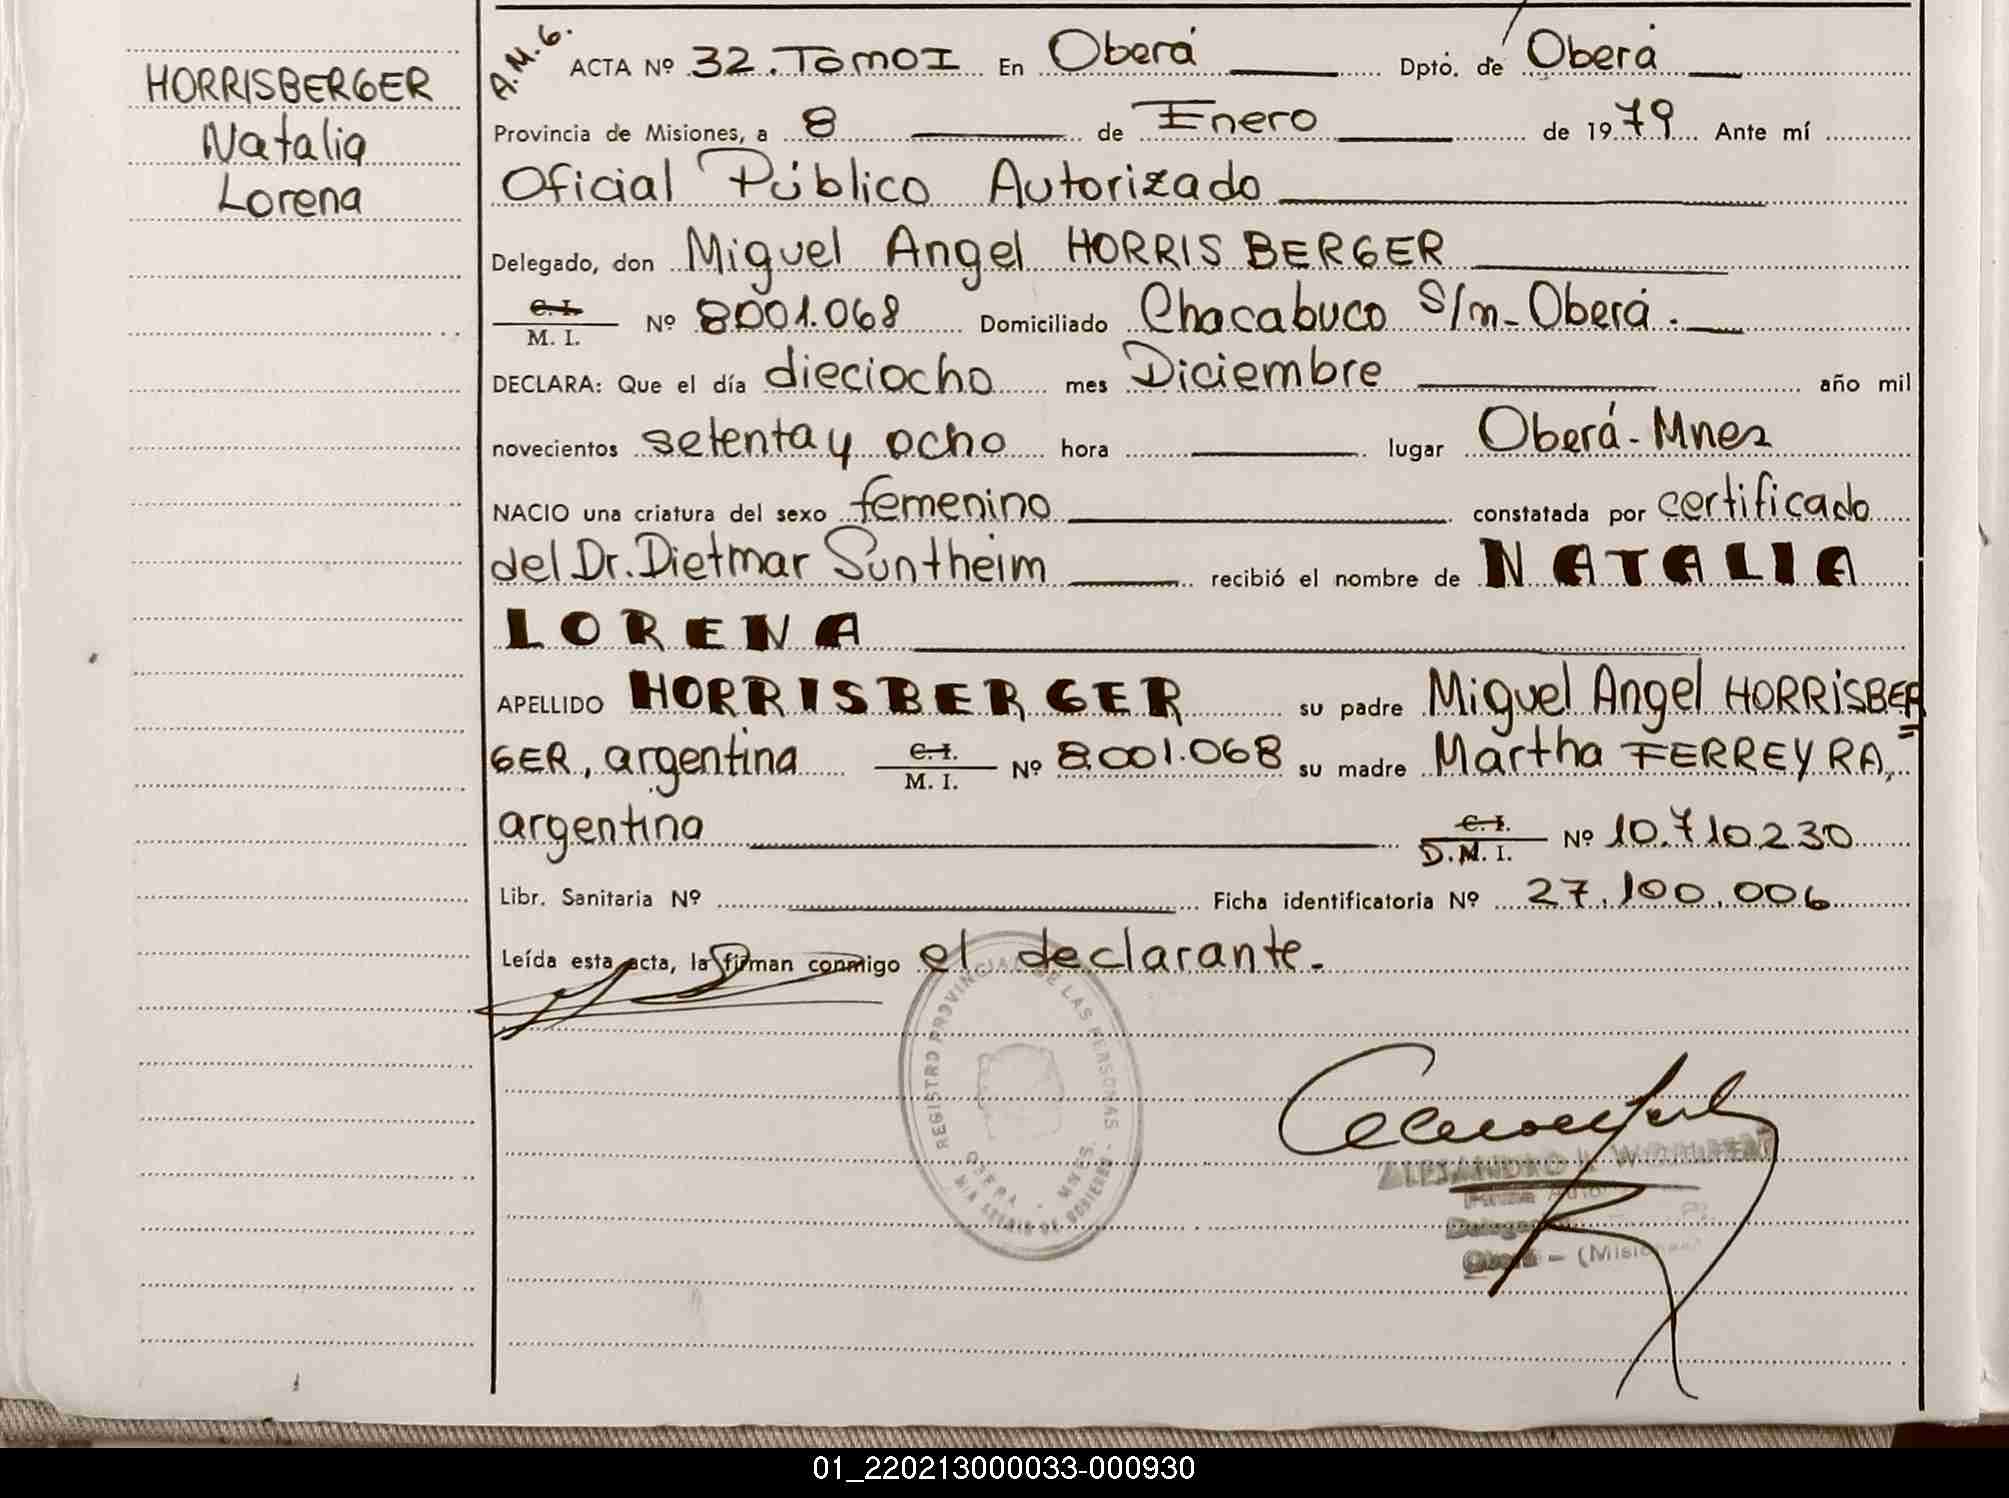 HORRISBERGER
Natalia
Lorena
A.M.G.
ACTA Nº 32.TomoI En Oberá Dpto. de Oberá
Provincia de Misiones, a 8 de Enero de 1979 Ante mí
Oficial Público Autorizado
Delegado, don Miguel Angel HORRISBERGER
C.I.
M. I. Nº 8001.068 Domiciliado Chacabuco s/n-Oberá.
DECLARA: Que el día dieciocho mes Diciembre año mil
novecientos setenta y ocho hora lugar Oberá-Mnes
NACIO una criatura del sexo femenino constatada por certificado
del Dr. Dietmar Suntheim recibió el nombre de NATALIA
LORENA
APELLIDO HORRISBERGER su padre Miguel Angel HORRISBER=
GER, argentina C.I. M. I. Nº 8.001.068 su madre Martha FERREYRA,
argentina C.I. D.M. I. Nº 10.710.230
Libr. Sanitaria Nº Ficha identificatoria Nº 27.100.006
Leída esta acta, la firman conmigo el declarante.-
REGISTRO PROVINCIAL DE LAS PERSONAS -
OBERA - MNES.
DE GOBIERNO -
ALEJANDRO
Firma
Oberá - (Misiones)
01_220213000033-000930